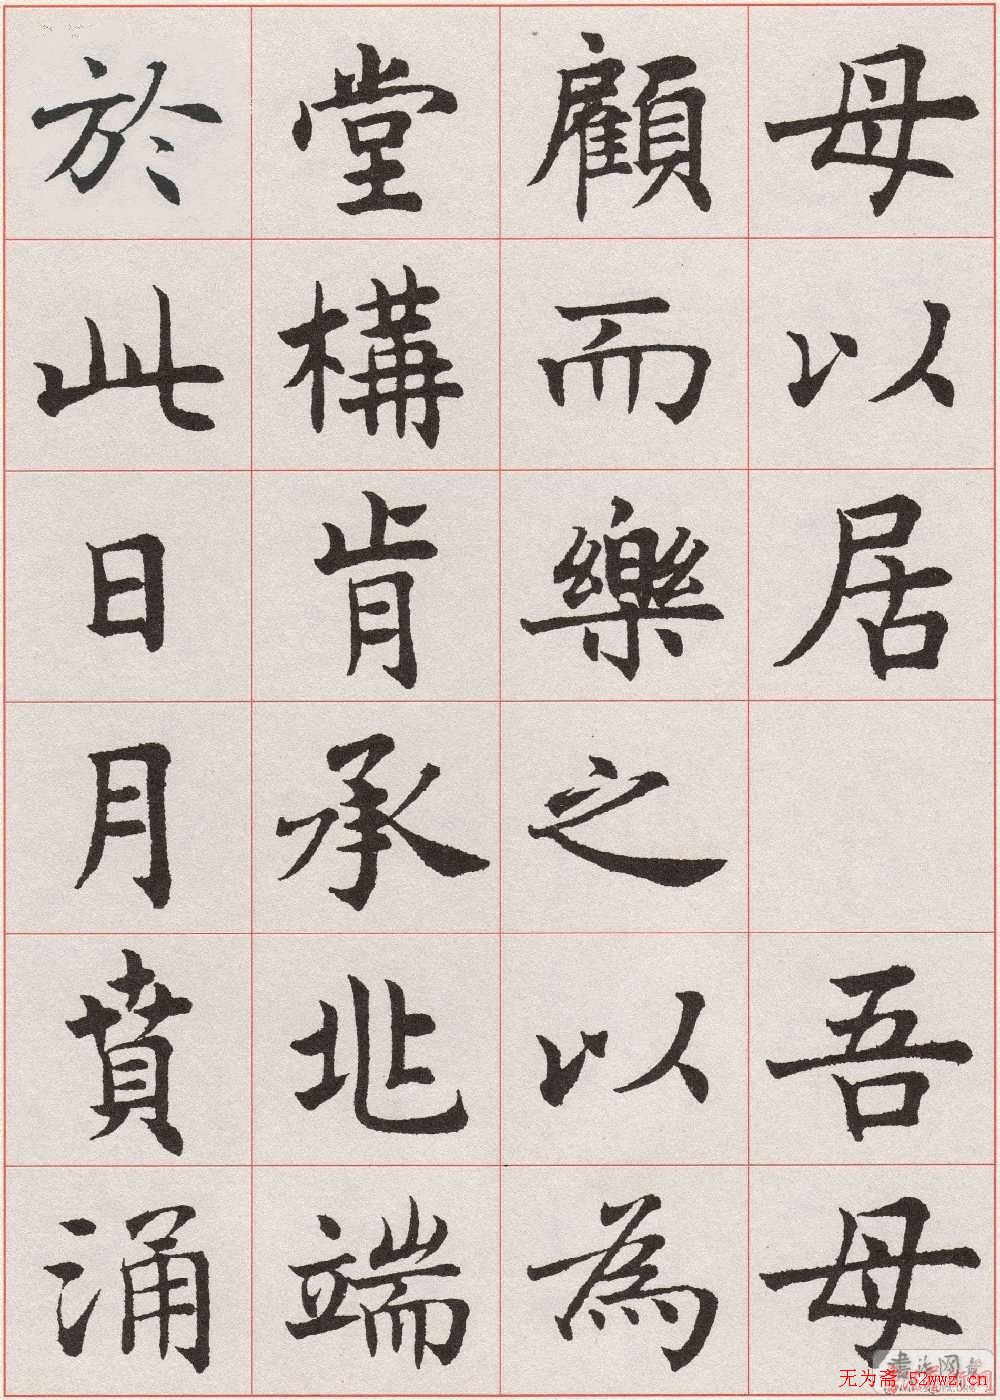 母以居　吾母
顧而樂之以為
堂構肯承兆端
於此日月賁涌
无为斋 52wwz.cn